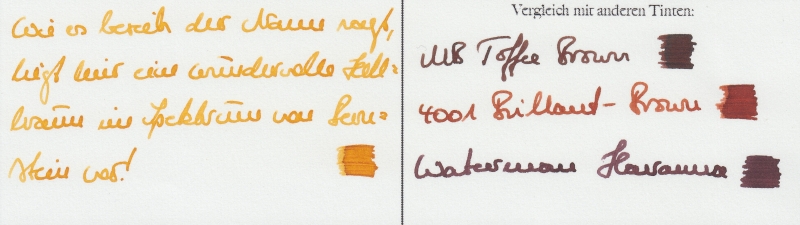 Wie es bereits der Name sagt,
liegt hier eine wundervolle Hell=
braun im Spektrum von Bern=
stein vor!
Vergleich mit anderen Tinten:
MB Toffee Brown
4001 Brillant-Brown
Waterman Havanna